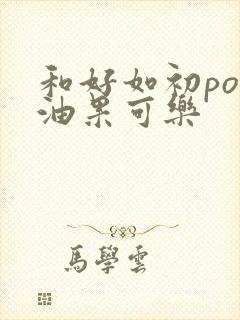 和好如初po
油果可樂
馬學雲